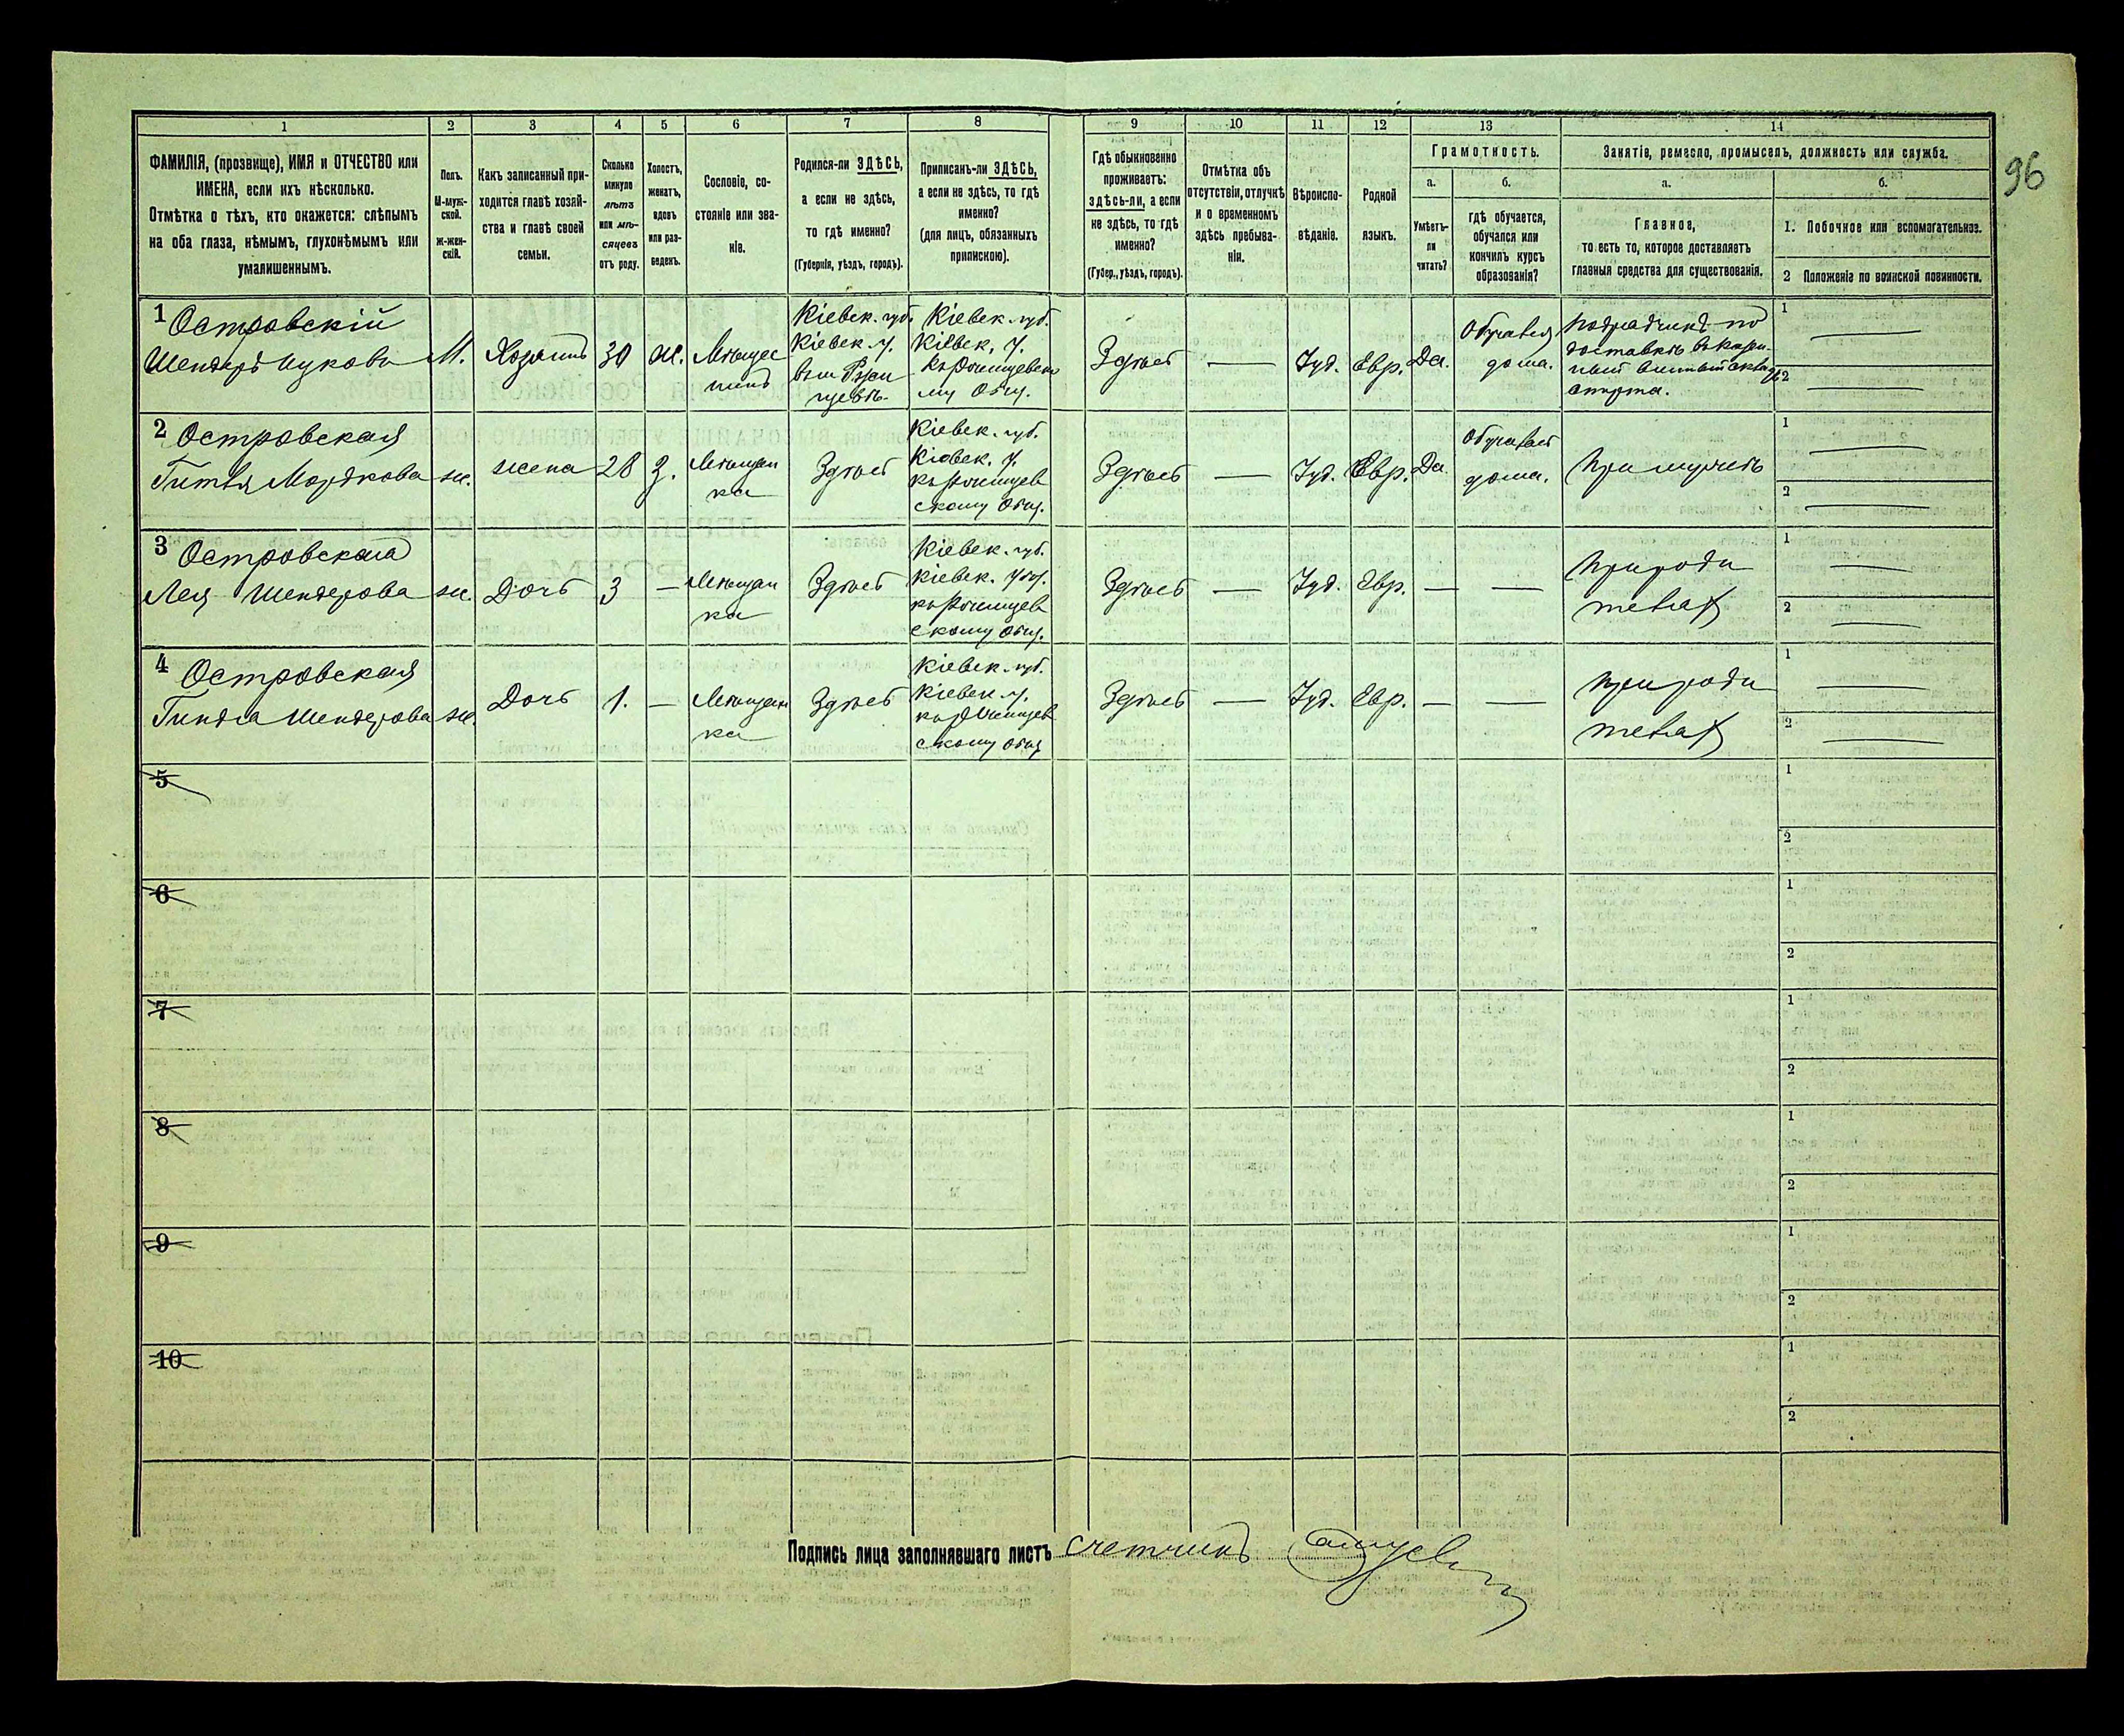 96
1 2 3 4 5 6 7 8 9 10 11 12 13 14
ФАМИЛІЯ, (прозвище), ИМЯ и ОТЧЕСТВО или
ИМЕНА, если ихъ нѣсколько.
Отмѣтка о тѣхъ, кто окажется: слѣпымъ
на оба глаза, нѣмымъ, глухонѣмымъ или
умалишеннымъ.
Полъ.
М-муж-
ской.
ж-жен-
скій.
Какъ записанный при-
ходится главѣ хозяй-
ства и главѣ своей
семьи.
Сколько
минуло
лѣтъ
или мѣ-
сяцевъ
отъ роду.
Холостъ,
женатъ,
вдовъ
или раз-
веденъ.
Сословіе, со-
стояніе или зва-
ніе.
Родился-ли ЗДѢСЬ,
а если не здѣсь,
то гдѣ именно?
(Губернія, уѣздъ, городъ).
Приписанъ-ли ЗДѢСЬ,
а если не здѣсь, то гдѣ
именно?
(для лицъ, обязанныхъ
припискою).
Гдѣ обыкновенно
проживаетъ:
здѣсь-ли, а если
не здѣсь, то гдѣ
именно?
(Губер., уѣздъ, городъ).
Отмѣтка объ
отсутствіи, отлучкѣ
и о временномъ
здѣсь пребыва-
ніи.
Вѣроиспо-
вѣданіе.
Родной
языкъ.
Грамотность.
а.
Умѣетъ-
ли
читать?
б.
гдѣ обучается,
обучался или
кончилъ курсъ
образованія?
Занятіе, ремесло, промыселъ, должность или служба.
а.
Главное,
то есть то, которое доставляетъ
главныя средства для существованія.
б.
1. Побочное или вспомагательное.
2 Положеніе по воинской повинности.
1 Островскій
Шендеръ Ицковъ
М.
Хозяинъ
30
ж.
Мѣщан
нинъ
Кіевск. губ.
Кіевск. у.
Кіевск. губ.
Кіевск. у.
му Общ.
Здѣсь
—
Іуд.
Евр.
Да.
Обучался
дома.
подрядчикъ по
доставкѣ въ казен-
ный винный складъ
спирта.
1 —
2 —
2 Островская
Гитля Мордкова
ж.
жена
28
З.
Мѣщан
ка
Здѣсь
Кіевск. губ.
Кіевск. у.
скому Общ.
Здѣсь
—
Іуд.
Евр.
Да
Обучалась
дома.
При мужѣ
1 —
2 —
3 Островская
Лея Шендерова
ж.
Дочь
3
—
Мѣщан
ка
Здѣсь
Кіевск. губ.
Кіевск. уѣз.
скому Общ.
Здѣсь
—
Іуд.
Евр.
—
—
При роди
теляхъ
1 —
2 —
4 Островская
Гиндля Шендерова
ж.
Дочь
1.
—
Мѣщан
ка
Здѣсь
Кіевск. губ.
Кіевск. у.
скому Общ
Здѣсь
—
Іуд.
Евр.
—
—
При роди
теляхъ
1 —
2 —
5
1
2
6
1
2
7
1
2
8
1
2
9
1
2
10
1
2
Подпись лица заполнявшаго листъ Счетчикъ